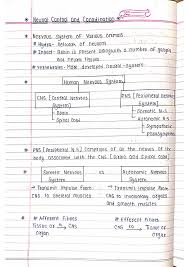 * Neural Control and Coordination *
* Nervous System of Various animals
* Hydra - Network of neurons
* Insect - Brain is present along with a number of ganglia and neural tissues
* Vertebrates - More developed neural-system
Human Nervous System
CNS [Central Nervous System]
PNS [Peripheral Nervous System]
* Brain
* Spinal Cord
* Somatic N.S
* Autonomic N.S
* Sympathetic
* Parasympathetic
* PNS [Peripheral N.S] Comprises of all the nerves of the body associated with the CNS [Brain and Spinal cord]
Somatic Nervous System
vs
Autonomic Nervous System
→ Transmit Impulse from CNS to skeletal muscles
→ Transmit Impulse from CNS to involuntary organs and smooth muscles
* Afferent Fibres
Tissue or Organ
CNS
* Efferent Fibres
CNS
Tissue or Organ